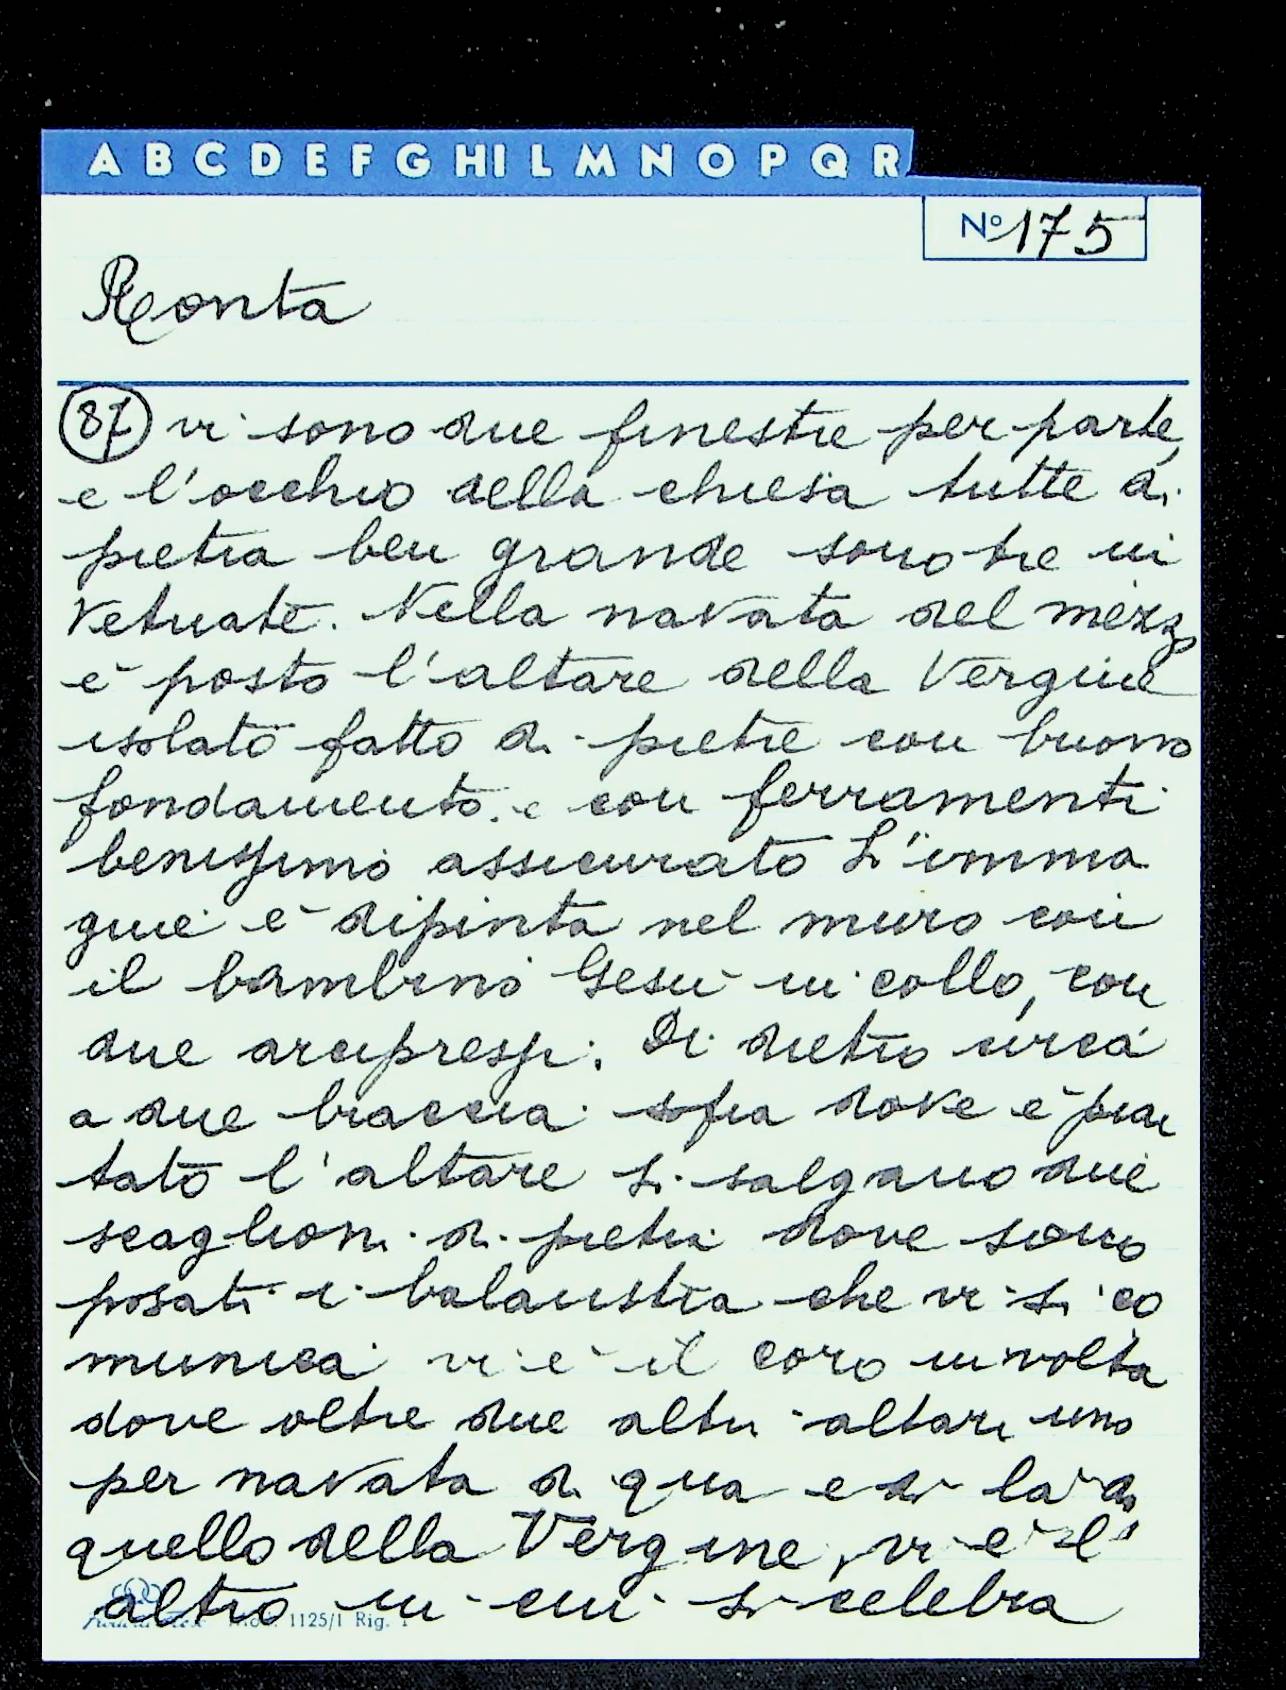 A B C D E F G HI L M N O P Q R
Nº 175
Ronta
87 vi sono due finestre per parte,
e l'occhio della chiesa tutte di
pietra ben grande sono tre in
vetuate. Nella navata del mezzo
è posto l'altare della Vergine
isolato fatto di pietre con buono
fondamento. e con ferramenti
benissimo assicurato L'imma
gine è dipinta nel muro con
il bambino Gesù in collo, con
due arcipressi. Di dietro circa
a due braccia sopra dove è pian
tato l'altare si salgano due
scaglioni di pietra dove sono
posati i balaustra che vi si co
munica vi è il coro in volta
dove oltre due altri altari uno
per navata di qua e di la di
quello della Vergine, vi è l'
altro in cui si celebra
Mod. 1125/1 Rig. 1